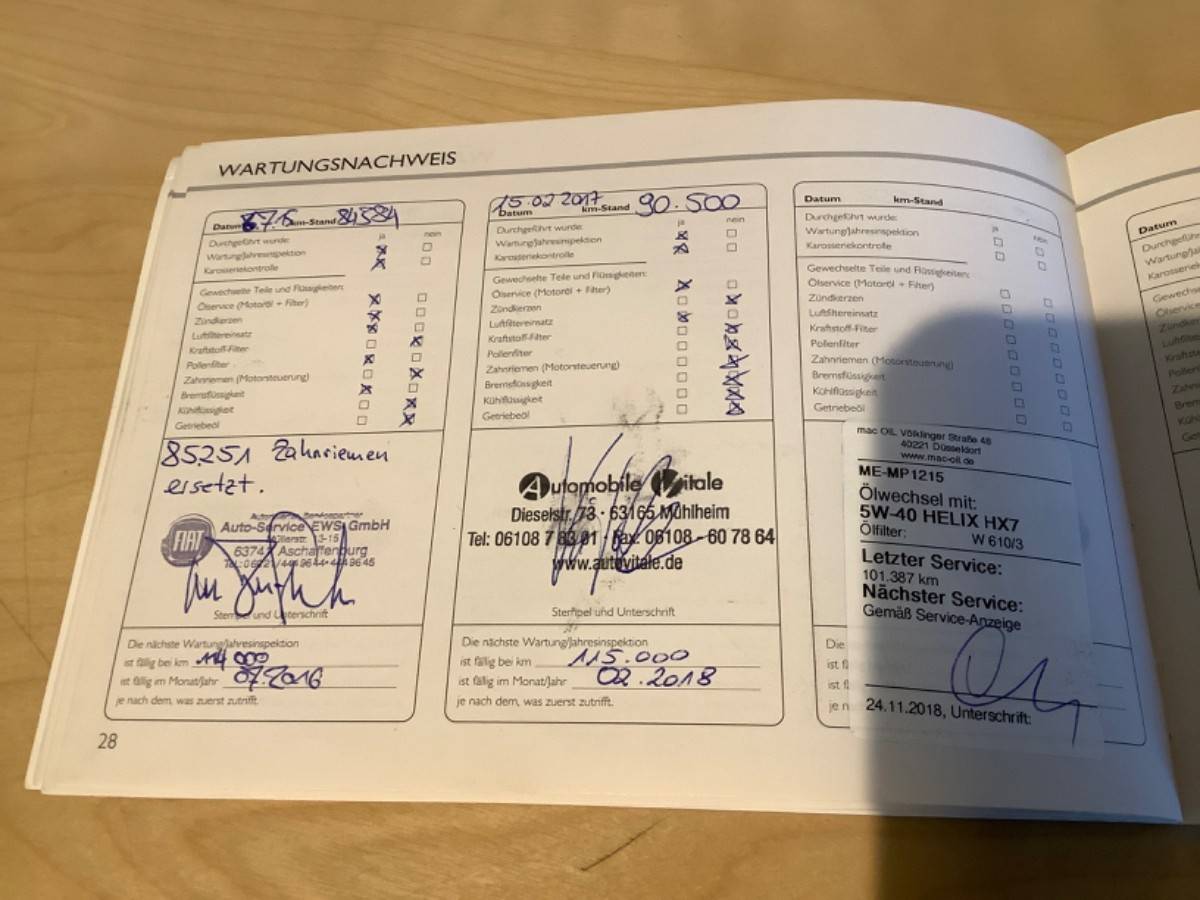 WARTUNGSNACHWEIS
Datum 7.15 km-Stand 84584
Durchgeführt wurde: ja nein
Wartung/Jahresinspektion
Karosseriekontrolle
Gewechselte Teile und Flüssigkeiten:
Ölservice (Motoröl + Filter)
Zündkerzen
Luftfiltereinsatz
Kraftstoff-Filter
Pollenfilter
Zahnriemen (Motorsteuerung)
Bremsflüssigkeit
Kühlflüssigkeit
Getriebeöl
85.251 Zahnriemen
ersetzt.
FIAT
Auto-Service EWS GmbH
13-15
Aschaffenburg
Stempel und Unterschrift
Die nächste Wartung/Jahresinspektion
ist fällig bei km 114 000
ist fällig im Monat/Jahr 07.2016
je nach dem, was zuerst zutrifft.
28
15.02 2017 90.500
Datum km-Stand
Durchgeführt wurde: ja nein
Wartung/Jahresinspektion
Karosseriekontrolle
Gewechselte Teile und Flüssigkeiten:
Ölservice (Motoröl + Filter)
Zündkerzen
Luftfiltereinsatz
Kraftstoff-Filter
Pollenfilter
Zahnriemen (Motorsteuerung)
Bremsflüssigkeit
Kühlflüssigkeit
Getriebeöl
Automobile Vitale
Dieselstr. 73 · 63165 Mühlheim
Tel: 06108 7 83 01 · Fax: 06108 - 60 78 64
www.autovitale.de
Stempel und Unterschrift
Die nächste Wartung/Jahresinspektion
ist fällig bei km 115.000
ist fällig im Monat/Jahr 02.2018
je nach dem, was zuerst zutrifft.
Datum km-Stand
Durchgeführt wurde: ja nein
Wartung/Jahresinspektion
Karosseriekontrolle
Gewechselte Teile und Flüssigkeiten:
Ölservice (Motoröl + Filter)
Zündkerzen
Luftfiltereinsatz
Kraftstoff-Filter
Pollenfilter
Zahnriemen (Motorsteuerung)
Bremsflüssigkeit
Kühlflüssigkeit
Getriebeöl
mac OIL Völklinger Straße 48
40221 Düsseldorf
www.mac-oil.de
ME-MP1215
Ölwechsel mit:
5W-40 HELIX HX7
Ölfilter: W 610/3
Letzter Service:
101.387 km
Nächster Service:
Gemäß Service-Anzeige
24.11.2018, Unterschrift:
Die
ist fä
ist f
je n
Datum